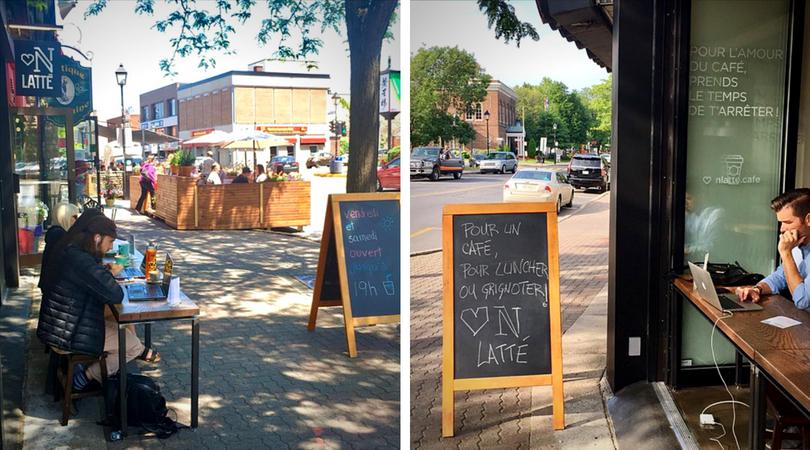 ♡N
LATTÉ
vendredi
et
samedi
ouvert
jusqu'à
19h
POUR UN
CAFÉ,
POUR LUNCHER
OU GRIGNOTER!
♡N
LATTÉ
POUR L'AMOUR
DU CAFÉ,
PRENDS
LE TEMPS
DE T'ARRÊTER!
♡ nlatté.cafe